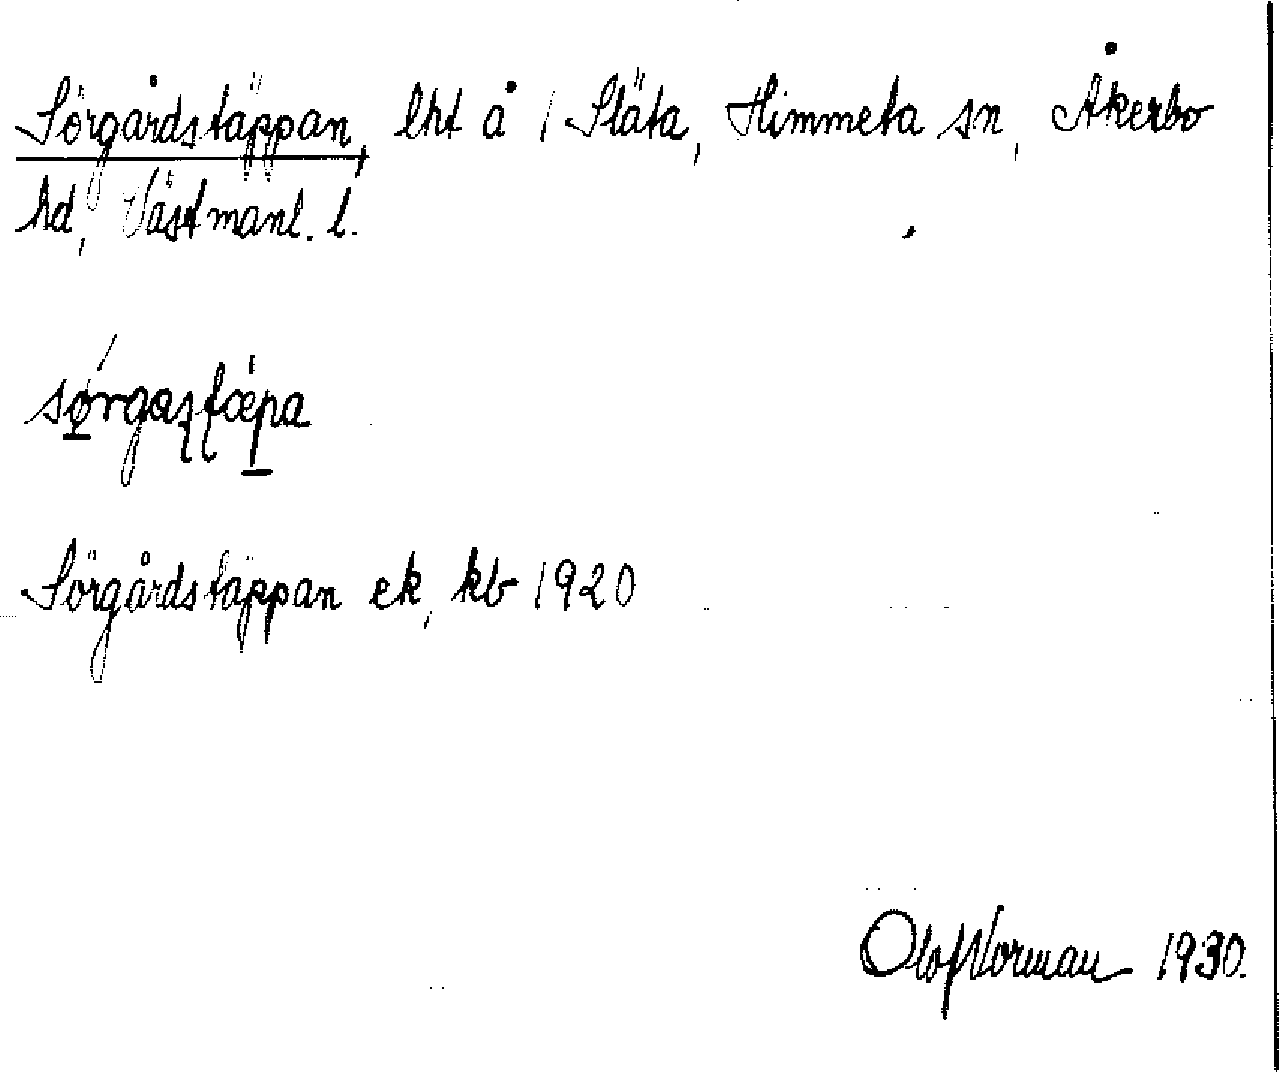 Sörgårdstäppan, lht å 1 Släta, Himmeta sn, Åkerbo
hd, Västmanl. l.
sørgastæpa
Sörgårdstäppan ek, kb 1920
Olof Norman 1930.